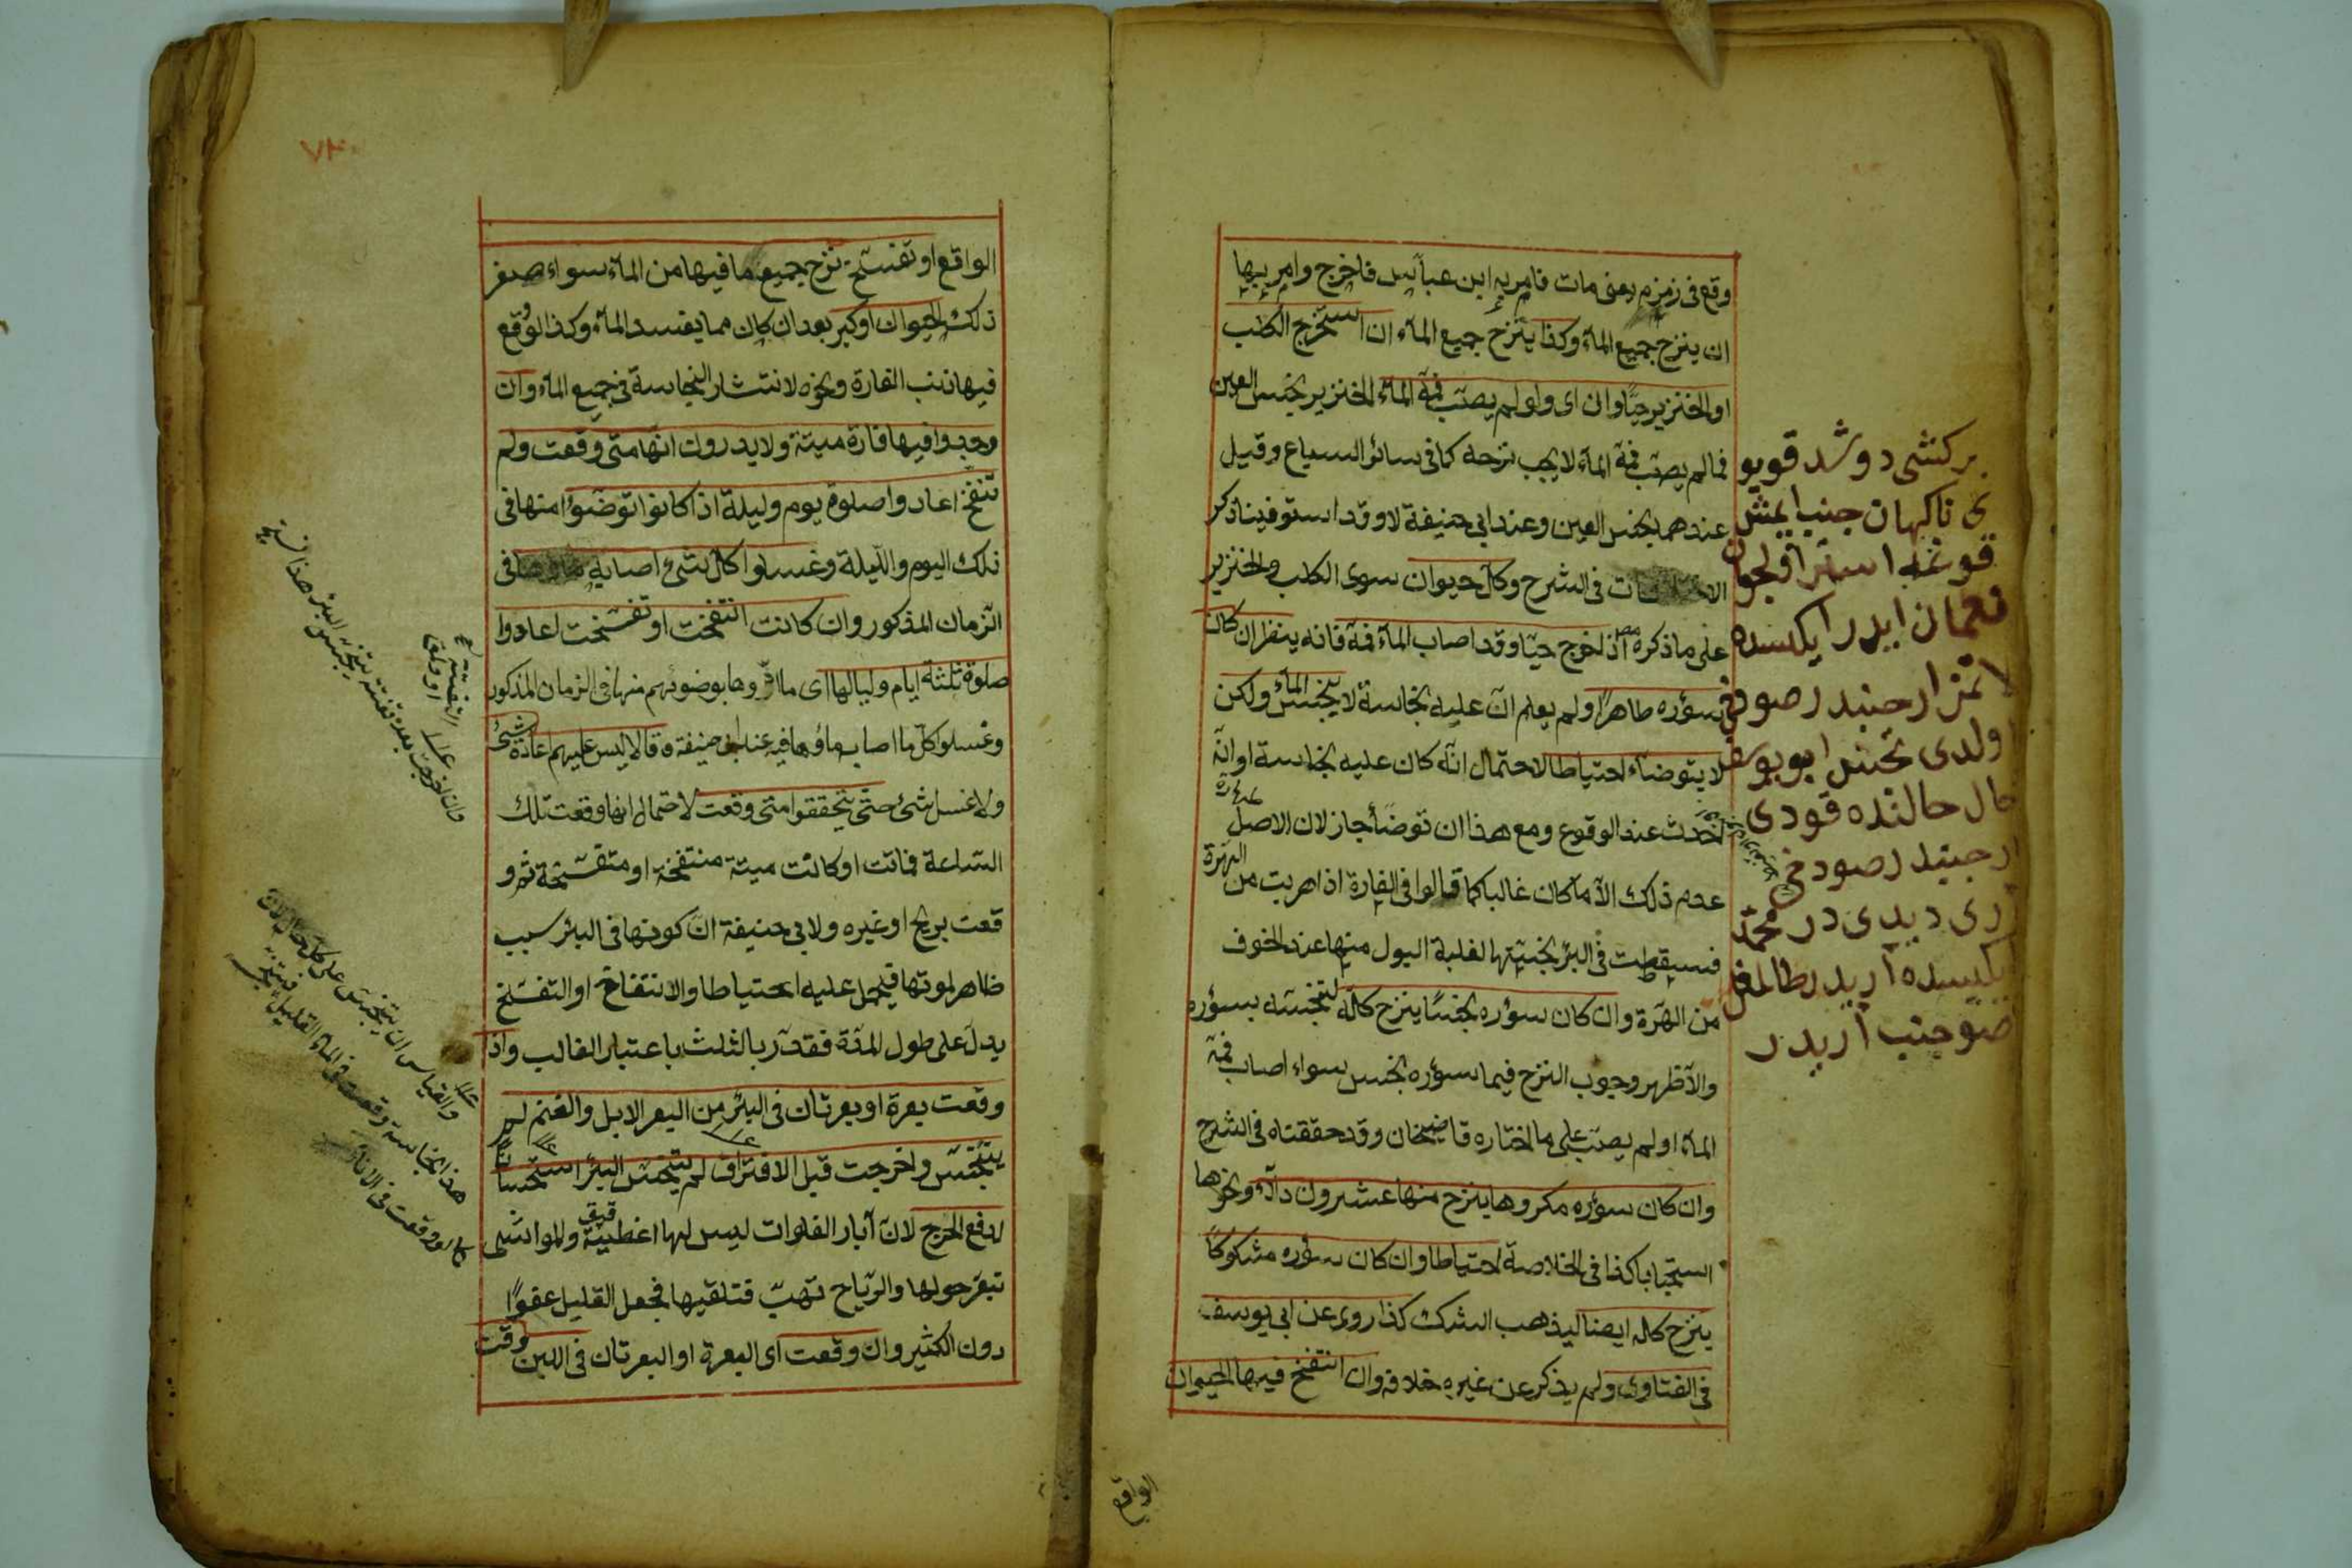 وقع فى زمزم يعنى مات فامر به ابن عباس فاخرج وامر بها
ان ينزح جميع الماء وكذا ينزح جميع الماء ان استخرج الكلب
او الخنزير حيا وان اى ولو لم يصب فمه الماء الخنزير نجس العين
فما لم يصب فمه الماء لا يجب نزحه كما فى سائر السباع وقيل
عندهما نجس العين وعند ابى حنيفة لا وقد استوفينا ذكر
فى الشرح وكل حيوان سوى الكلب والخنزير
على ما ذكره اذ اخرج حيا وقد اصاب الماء فمه فانه ينظر ان كان
سؤره طاهرا ولم يعلم ان عليه نجاسة لا ينجس الماء ولكن
لا يتوضاء احتياطا لاحتمال انه كان عليه نجاسة او انه
احدث عند الوقوع ومع هذا ان توضأ جاز لان الاصل
عدم ذلك الا ما كان غالبا كما قالوا فى الفارة اذا هربت من الهرة
فسقطت فى البئر نجستها لغلبة البول منها عند الخوف
من الهرة وان كان سؤره نجسا ينزح كله لتنجسه بسؤره
والاظهر وجوب النزح فيما سؤره نجس سواء اصاب فمه
الماء او لم يصب على ما اختاره قاضيخان وقد حققناه فى الشرح
وان كان سؤره مكروها ينزح منها عشرون دلاء ونحوها
استحبابا كذا فى الخلاصة احتياطا وان كان سؤره مشكوكا
ينزح كله ايضا ليذهب الشك كذا روى عن ابى يوسف
فى الفتاوى ولم يذكر عن غيره خلافه وان انتفخ فيها الحيوان
الواقع
بر كشى دوشد قويو
ى ناكهان جنب ايمش
نعمان ايدر ايكسده
ارجنبدر صو دخى
اولدى نجس ابو يوسف
حال حالنده قودى
ار جنبدر صو دخى
ارى ديدى در محمد
ايكيسده اريدر طالمغل
صو جنب اريدر
٧٣
الواقع او تفسخ نزح جميع ما فيها من الماء سواء صغر
ذلك الحيوان او كبر بعد ان كان مما يفسد الماء وكذا لو وقع
فيها ذنب الفارة ونحوه لانتشار النجاسة فى جميع الماء وان
وجدوا فيها فارة ميتة ولا يدرون انها متى وقعت ولم
تنفخ اعادوا صلوة يوم وليلة اذا كانوا توضؤا منها فى
ذلك اليوم والليلة وغسلوا كل شئ اصابه ماؤها فى
الزمان المذكور وان كانت انتفخت او تفسخت اعادوا
صلوة ثلثة ايام ولياليها اى ما ادوها بوضوئهم منها فى الزمان المذكور
وغسلوا كل ما اصابه ماؤها فيه عند ابى حنيفة وقالا ليس عليهم اعادة شئ
ولا غسل شئ حتى يتحققوا متى وقعت لاحتمال انها وقعت تلك
الساعة فماتت او كانت ميتة منتفخة او متفسخة ثم و
قعت بريح او غيره ولابى حنيفة ان كونها فى البئر سبب
ظاهر لموتها فيحمل عليه احتياطا والانتفاخ او التفسخ
يدل على طول المدة فقدر بالثلث باعتبار الغالب واذا
وقعت بعرة او بعرتان فى البئر من البعر الابل والغنم لم
يتنجس واخرجت قبل الافتراق لم يتنجس البئر استحسانا
لدفع الحرج لان آبار الفلوات ليس لها اغطية والمواشى
تبعر حولها والرياح تهب فتلقيها فجعل القليل عفوا
دون الكثير وان وقعت اى البعرة او البعرتان فى اللبن وقت
والقياس ان يتنجس على كل حال لان
هذا نجاسة وقعت فى الماء القليل فيتنجس
كما لو وقعت فى الاناء